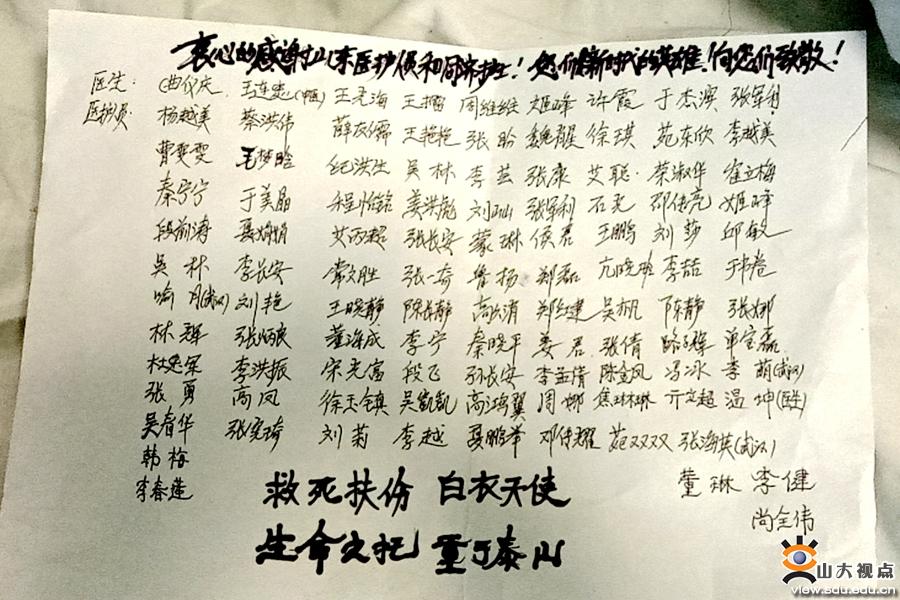 衷心的感谢山东医护员和同济护士！您们是新时代的英雄，向您们致敬！
医生： 曲仪庆 王连忠 王光海 周维维 姬峰 许霞 于杰滨 张军利
医护员： 杨越美 蔡洪伟 薛衣儒 王艳艳 张盼 魏醒 徐琪 苑东欣 李越美
曹雯雯 毛梦晗 纪洪生 吴林 李芸 张康 艾聪 荣淑华 崔立梅
秦宁宁 于美晶 程怡铭 姜洪彪 刘汕 张军利 石光 邵传亮 姬峰
段前涛 聂娟娟 艾丙超 张长安 蒙琳 侯君 王鹏 刘莎 邱敏
吴林 李长安 常文胜 张一奇 鲁杨 郑磊 亢晓琳 李喆 于卷
喻月(武汉) 刘艳 王晓静 陈长静 高公涓 郑红建 吴帆 陈静 张娜
林辉 张炳良 董海成 李宁 秦晓平 姜君 张倩 单宝磊
杜忠军 李洪振 宋光富 段飞 孙长安 李孟倩 陈金凤 冯冰 李萌(武汉)
张勇 高凤 徐玉镇 吴凯凯 高鸿翼 周娜 焦琳琳 亓文超 温坤(医生)
吴春华 张奕琦 刘菊 李越 聂鹏举 邓传耀 苑双双 张海英(武汉)
韩梅
李春莲 董琳 李健
救死扶伤 白衣天使
尚全伟
生命之托 重于泰山
山大视点
view.sdu.edu.cn